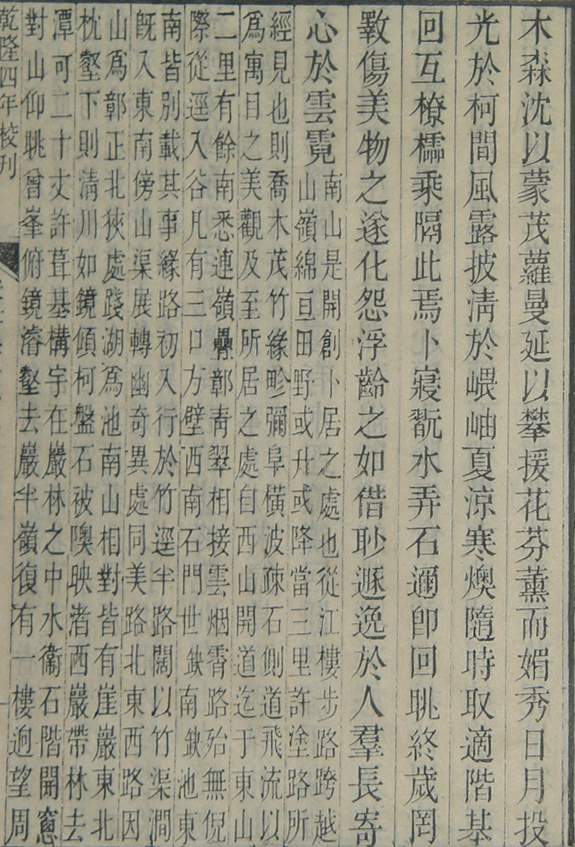 木森沈以蒙茂蘿曼延以攀援花芬薰而媚秀日月投
光於柯間風露披清於嵔岫夏涼寒燠隨時取適階基
回互橑櫺乘隔此焉卜寢翫水弄石邇卽回眺終歲罔
斁傷美物之遂化怨浮齡之如借眇遯逸於人羣長寄
心於雲霓
南山是開創卜居之處也從江樓步路跨越
山嶺綿亘田野或升或降當三里許塗路所
經見也則喬木茂竹緣畛彌阜橫波疎石側道飛流以
爲寓日之美觀及至所居之處自西山開道迄于東山
二里有餘南悉連嶺疊鄣青翠相接雲烟霄路殆無倪
際從逕入谷凡有三口方壁西南石門世缺南缺池東
南皆別載其事緣路初入行於竹逕半路闊以竹渠澗
旣入東南傍山渠展轉幽奇異處同美路北東西路因
山爲鄣正北狹處踐湖爲池南山相對皆有崖巖東北
枕壑下則清川如鏡傾柯盤石被隩映渚西巖帶林去
潭可二十丈許葺基構宇在巖林之中水衞石階開窻
對山仰眺曾峯俯鏡濬壑去巖半嶺復有一樓逈望周
乾隆四年校刊